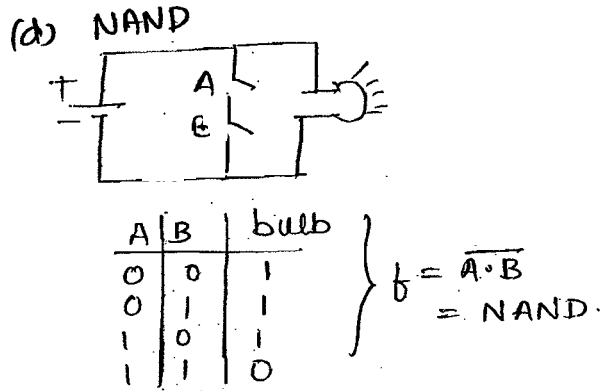 (d) NAND
+
-
A
B
A B bulb
0 0 1
0 1 1
1 0 1
1 1 0
f = \overline{A·B}
= NAND.